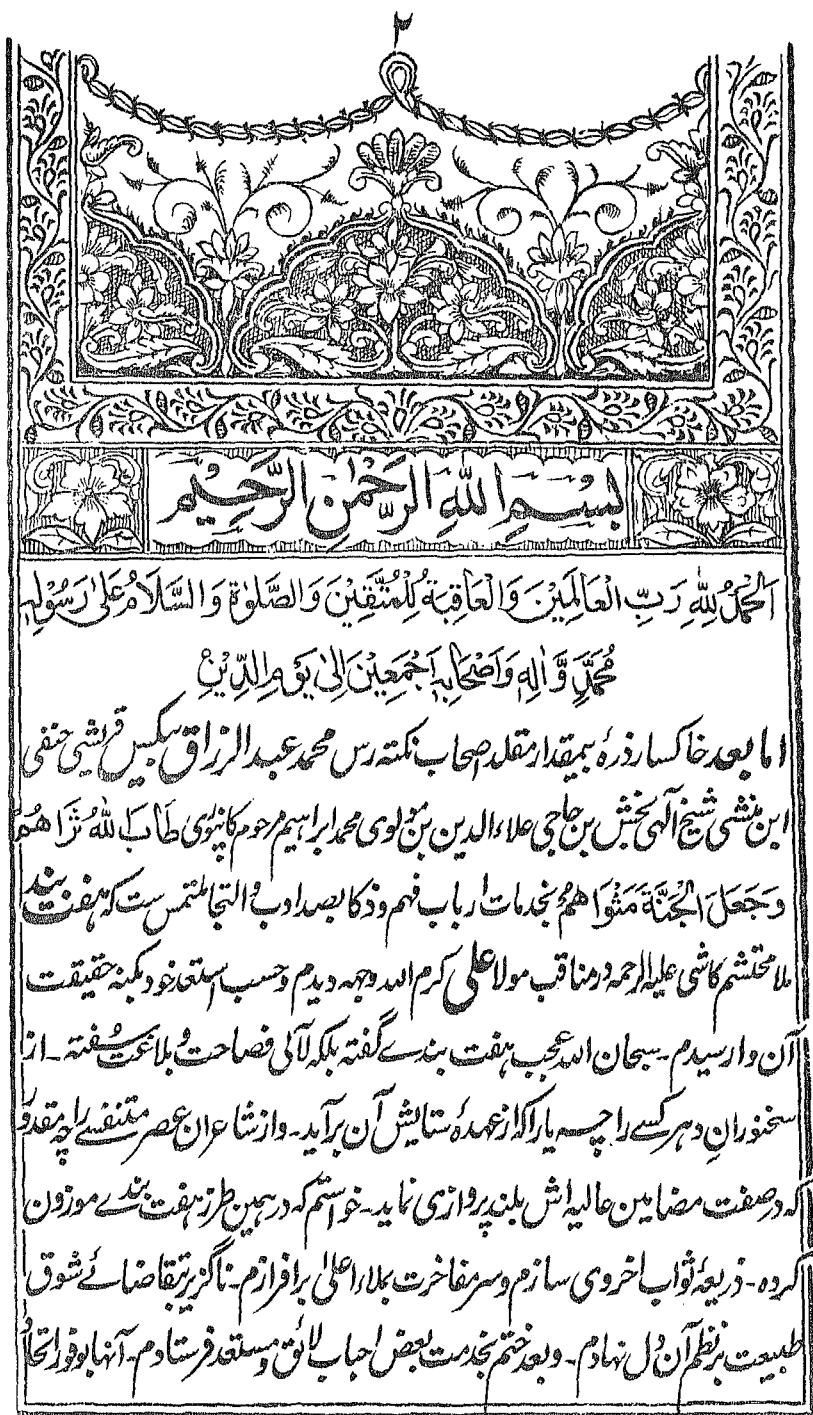 ۲
بِسْمِ اللهِ الرَّحْمٰنِ الرَّحِيْمِ
اَلْحَمْدُ لِلّٰهِ رَبِّ الْعَالَمِيْنَ وَالْعَاقِبَةُ لِلْمُتَّقِيْنَ وَالصَّلوٰةُ وَالسَّلَامُ عَلىٰ رَسُوْلِهٖ
مُحَمَّدٍ وَّاٰلِهٖ وَاَصْحَابِهٖ اَجْمَعِيْنَ اِلىٰ يَوْمِ الدِّيْنِ
اما بعد خاکسار ذرۂ بیمقدار مقلد اصحاب نکته رس محمد عبد الرزاق بیکس قریشی حنفی
ابن منشی شیخ آلہی بخش بن حاجی علاء الدین بن مولوی محمد ابراهیم مرحوم کانپوری طَابَ اللهُ ثَرَاهُمْ
وَجَعَلَ الْجَنَّةَ مَثْوَاهُمْ بخدمات ارباب فهم وذکا بصد ادب و التجا ملتمس ست که هفت بند
ملا محتشم کاشی علیه الرحمه در مناقب مولا علی کرم الله وجهه دیدم و حسب استعداد خود بکنه حقیقت
آن وارسیدم ـ سبحان الله عجب هفت بندے گفته بلکه لآلی فصاحت و بلاغت سُفته ـ از
سخنورانِ دهر کسے را چه یارا که از عهدهٔ ستایش آن برآید ـ و از شاعران عصر متنفسے را چه مقدور
که در صفت مضامین عالیه اش بلند پروازی نماید ـ خواستم که در همین طرز هفت بندے موزون
کرده ـ ذریعهٔ ثواب اخروی سازم و سر مفاخرت بملاء اعلیٰ برافرازم ـ ناگزیر بتقاضائے شوق
طبیعت بر نظم آن دل نهادم ـ و بعد ختم بخدمت بعض احباب لائق و مستعد فرستادم ـ آنها بوفور اتحاد